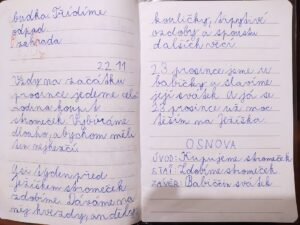 budka Třídíme
odpad
zahrada
22.11
Vždy na začátku
prosince jedeme celá
rodina koupit
stromeček. Vybíráme
dlouho, abychom měli
ten nejhezčí.
týden před
Ježíškem stromeček
zdobíme. Dáváme na
něj hvězdy, anděly,
kouličky, třpytivé
ozdoby a spoustu
dalších věcí.
23. prosince jsme u
babičky a slavíme
její svátek. A já se
23. prosince už moc
těším na Ježíška.
OSNOVA
ÚVOD: Kupujeme stromeček
STAŤ: Zdobíme stromeček
ZÁVĚR: Babiččin svátek